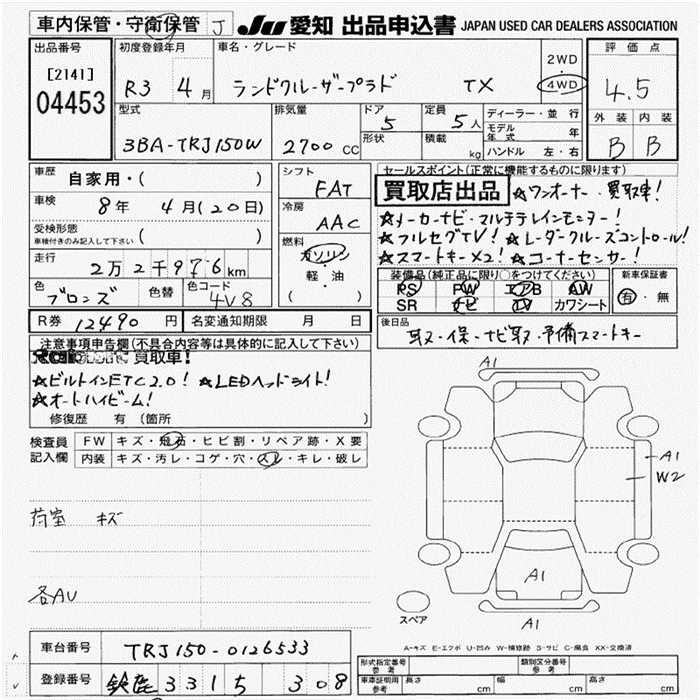 車内保管・守衛保管 J JU 愛知 出品申込書 JAPAN USED CAR DEALERS ASSOCIATION
出品番号 初度登録年月 車名・グレード 評価点
[2141] 04453
R3 4月 ランドクルーザープラド TX 2WD・4WD 4.5
型式 排気量 ドア 定員 ディーラー・並行 外装 内装
3BA-TRJ150W 2700CC 5 5人 モデル年式 年 B B
形状 積載 kg ハンドル 左・右
車歴 自家用・( ) シフト FAT
セールスポイント(正常に機能するものに限ります)
買取店出品 ☆ワンオーナー・買取車!
車検 8年 4月(20日) 冷房 AAC
☆メーカーナビ・マルチテレインモニター!
受検形態 車検付きのみ記入して下さい ( ) 燃料 ガソリン・軽・油 ( )
☆フルセグTV! ☆レーダークルーズコントロール!
☆スマートキーX2! ☆コーナーセンサー!
走行 2万2千976km
装備品(純正品に限り○をつけてください) 新車保証書
色 ブロンズ 色替 色コード 4V8
PS PW エアB AW 有・無
SR ナビ TV カワシート
R券 12490円 名変通知期限 月 日
後日品 取・保・ナビ取・予備スマートキー
注意事項申告欄(不具合内容等は具体的に記入して下さい)
買取車!
☆ビルトインETC2.0! ☆LEDヘッドライト!
☆オートハイビーム!
修復歴 有 (箇所 )
検査員記入欄 FW キズ・飛石・ヒビ割・リペア跡・X要
内装 キズ・汚レ・コゲ・穴・スレ・キレ・破レ
A1
A1
W2
荷室 キズ
A1
各AU
スペア
A1
A-キズ E-エクボ U-凹み W-補修跡 S-サビ C-腐食 XX-交換済
車台番号 TRJ150-0126533
型式指定番号 参考 類別区分番号 参考
登録番号 鈴鹿 331 ち 308
車庫証明用 参考 長さ cm 幅 cm 高さ cm